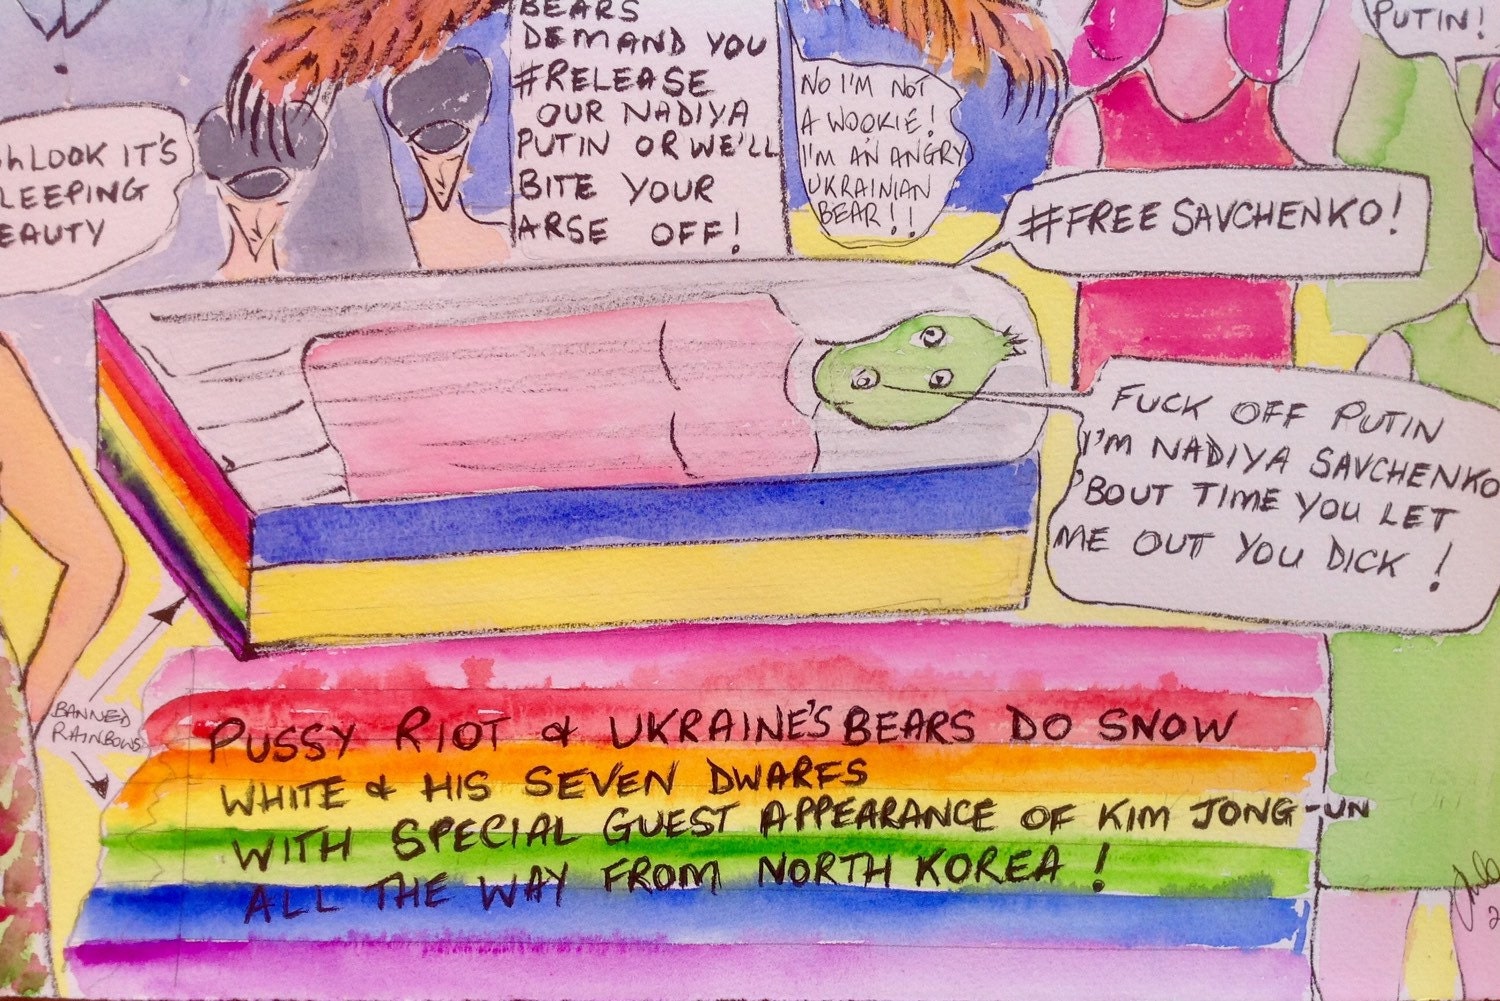 BEARS
DEMAND YOU
#RELEASE
OUR NADIYA
PUTIN OR WE'LL
BITE YOUR
ARSE OFF!
PUTIN!
LOOK IT'S
NO I'M NOT
A WOOKIE!
I'M AN ANGRY
UKRAINIAN
BEAR!!
#FREE SAVCHENKO!
FUCK OFF PUTIN
I'M NADIYA SAVCHENKO
'BOUT TIME YOU LET
ME OUT YOU DICK!
BANNED
RAINBOWS
PUSSY RIOT & UKRAINE'S BEARS DO SNOW
WHITE & HIS SEVEN DWARFS
WITH SPECIAL GUEST APPEARANCE OF KIM JONG-UN
ALL THE WAY FROM NORTH KOREA!